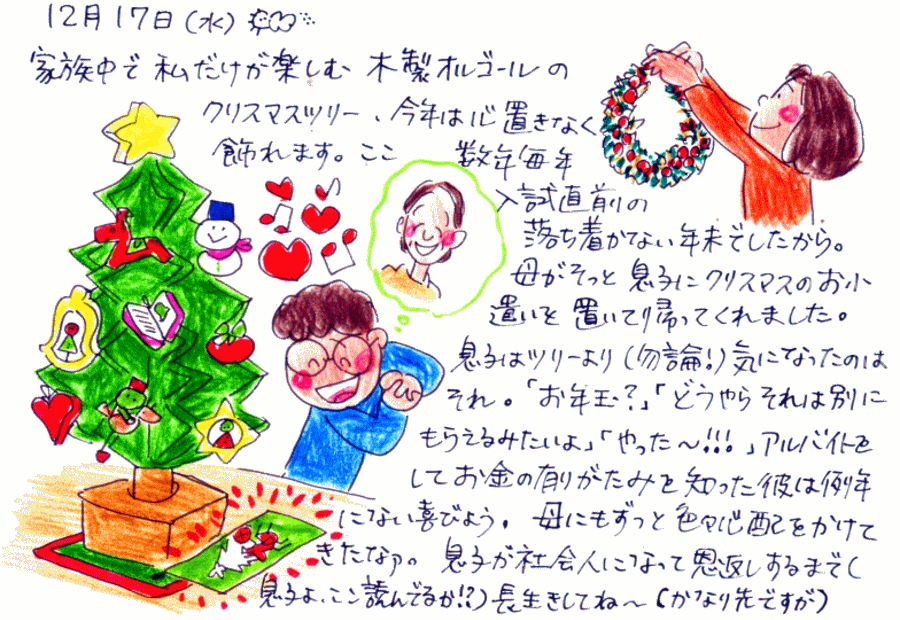 12月17日(水)
家族中で私だけが楽しむ 木製オルゴールの
クリスマスツリー、今年は心置きなく
飾れます。ここ 数年毎年
入試直前の
落ち着かない年末でしたから。
母がそっと息子にクリスマスのお小
遣いを置いて帰ってくれました。
息子はツリーより(勿論!)気になったのは
それ。「お年玉?」「どうやらそれは別に
もらえるみたいよ」「やった〜!!!」アルバイトを
してお金の有りがたみを知った彼は例年
にない喜びよう。母にもずっと色々心配をかけて
きたなァ。息子が社会人になって恩返しするまで(
息子よ、ここ読んでるか!?)長生きしてね〜(かなり先ですが)